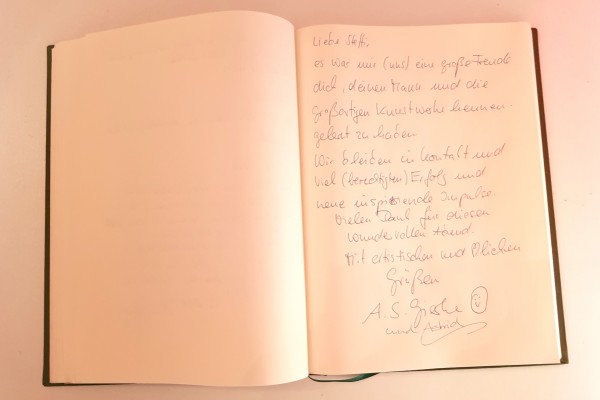 Liebe Steffi,
es war mir (uns) eine große Freude
dich, deinen Mann und die
großartigen Kunstwerke kennen-
gelernt zu haben.
Wir bleiben in Kontakt und
viel (berechtigten) Erfolg und
neue inspirierende Impulse.
Vielen Dank für diesen
wundervollen Abend.
Mit artistischen und
Grüßen
A. S.
und Astrid